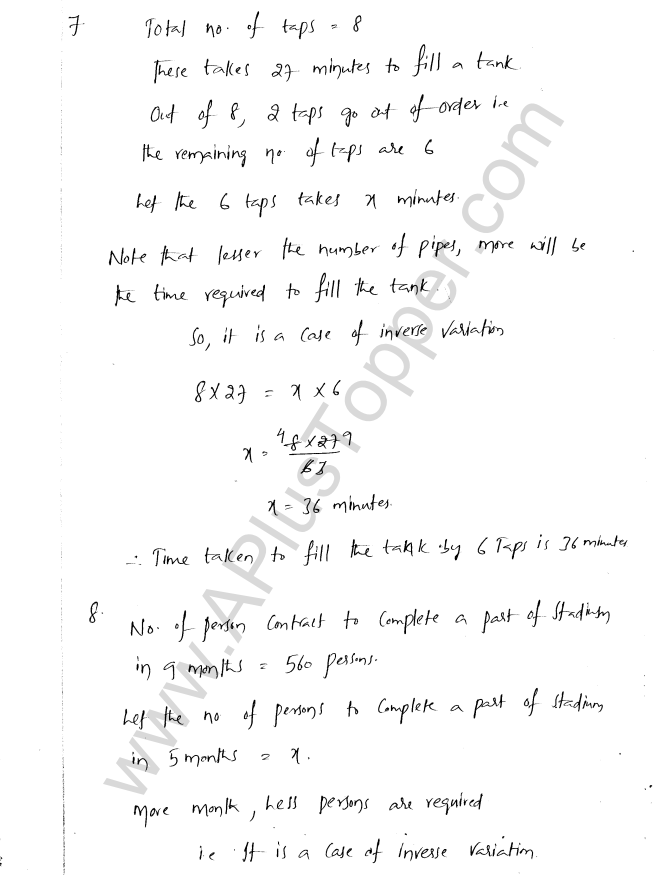 7 Total no. of taps = 8
These takes 27 minutes to fill a tank.
Out of 8, 2 taps go out of order i.e
the remaining no. of taps are 6
Let the 6 taps takes x minutes.
Note that lesser the number of pipes, more will be
the time required to fill the tank.
So, it is a case of inverse variation
8 x 27 = x x 6
x = 4 8 x 27 9 / 6 3
x = 36 minutes.
∴ Time taken to fill the tank by 6 Taps is 36 minutes
8. No. of person contract to complete a part of stadium
in 9 months = 560 persons.
Let the no of persons to complete a part of stadium
in 5 months = x.
More month, Less persons are required
i.e It is a case of inverse variation.
www.APlusTopper.com